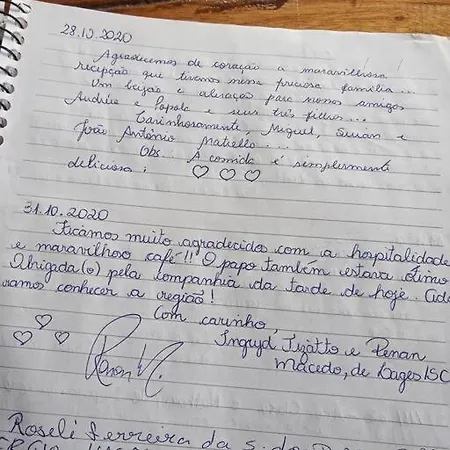 28.10.2020
Agradecemos de coração a maravilhosa
recepção que tivemos nessa preciosa família...
Um beijão e abração para nossos amigos
Andréia e Papola e seus três filhos...
Carinhosamente, Miguel, Suian e
João Antônio Matiello...
Obs... A comida é simplesmente
deliciosa!
31.10.2020
Ficamos muito agradecidos com a hospitalidade
e maravilhoso café!! O papo também estava ótimo
Obrigada(o) pela companhia da tarde de hoje.
vamos conhecer a região!
Com carinho,
Ingryd Tizatto e Renan
Macedo, de Lages/SC
Renan M.
Roseli Ferreira da S.